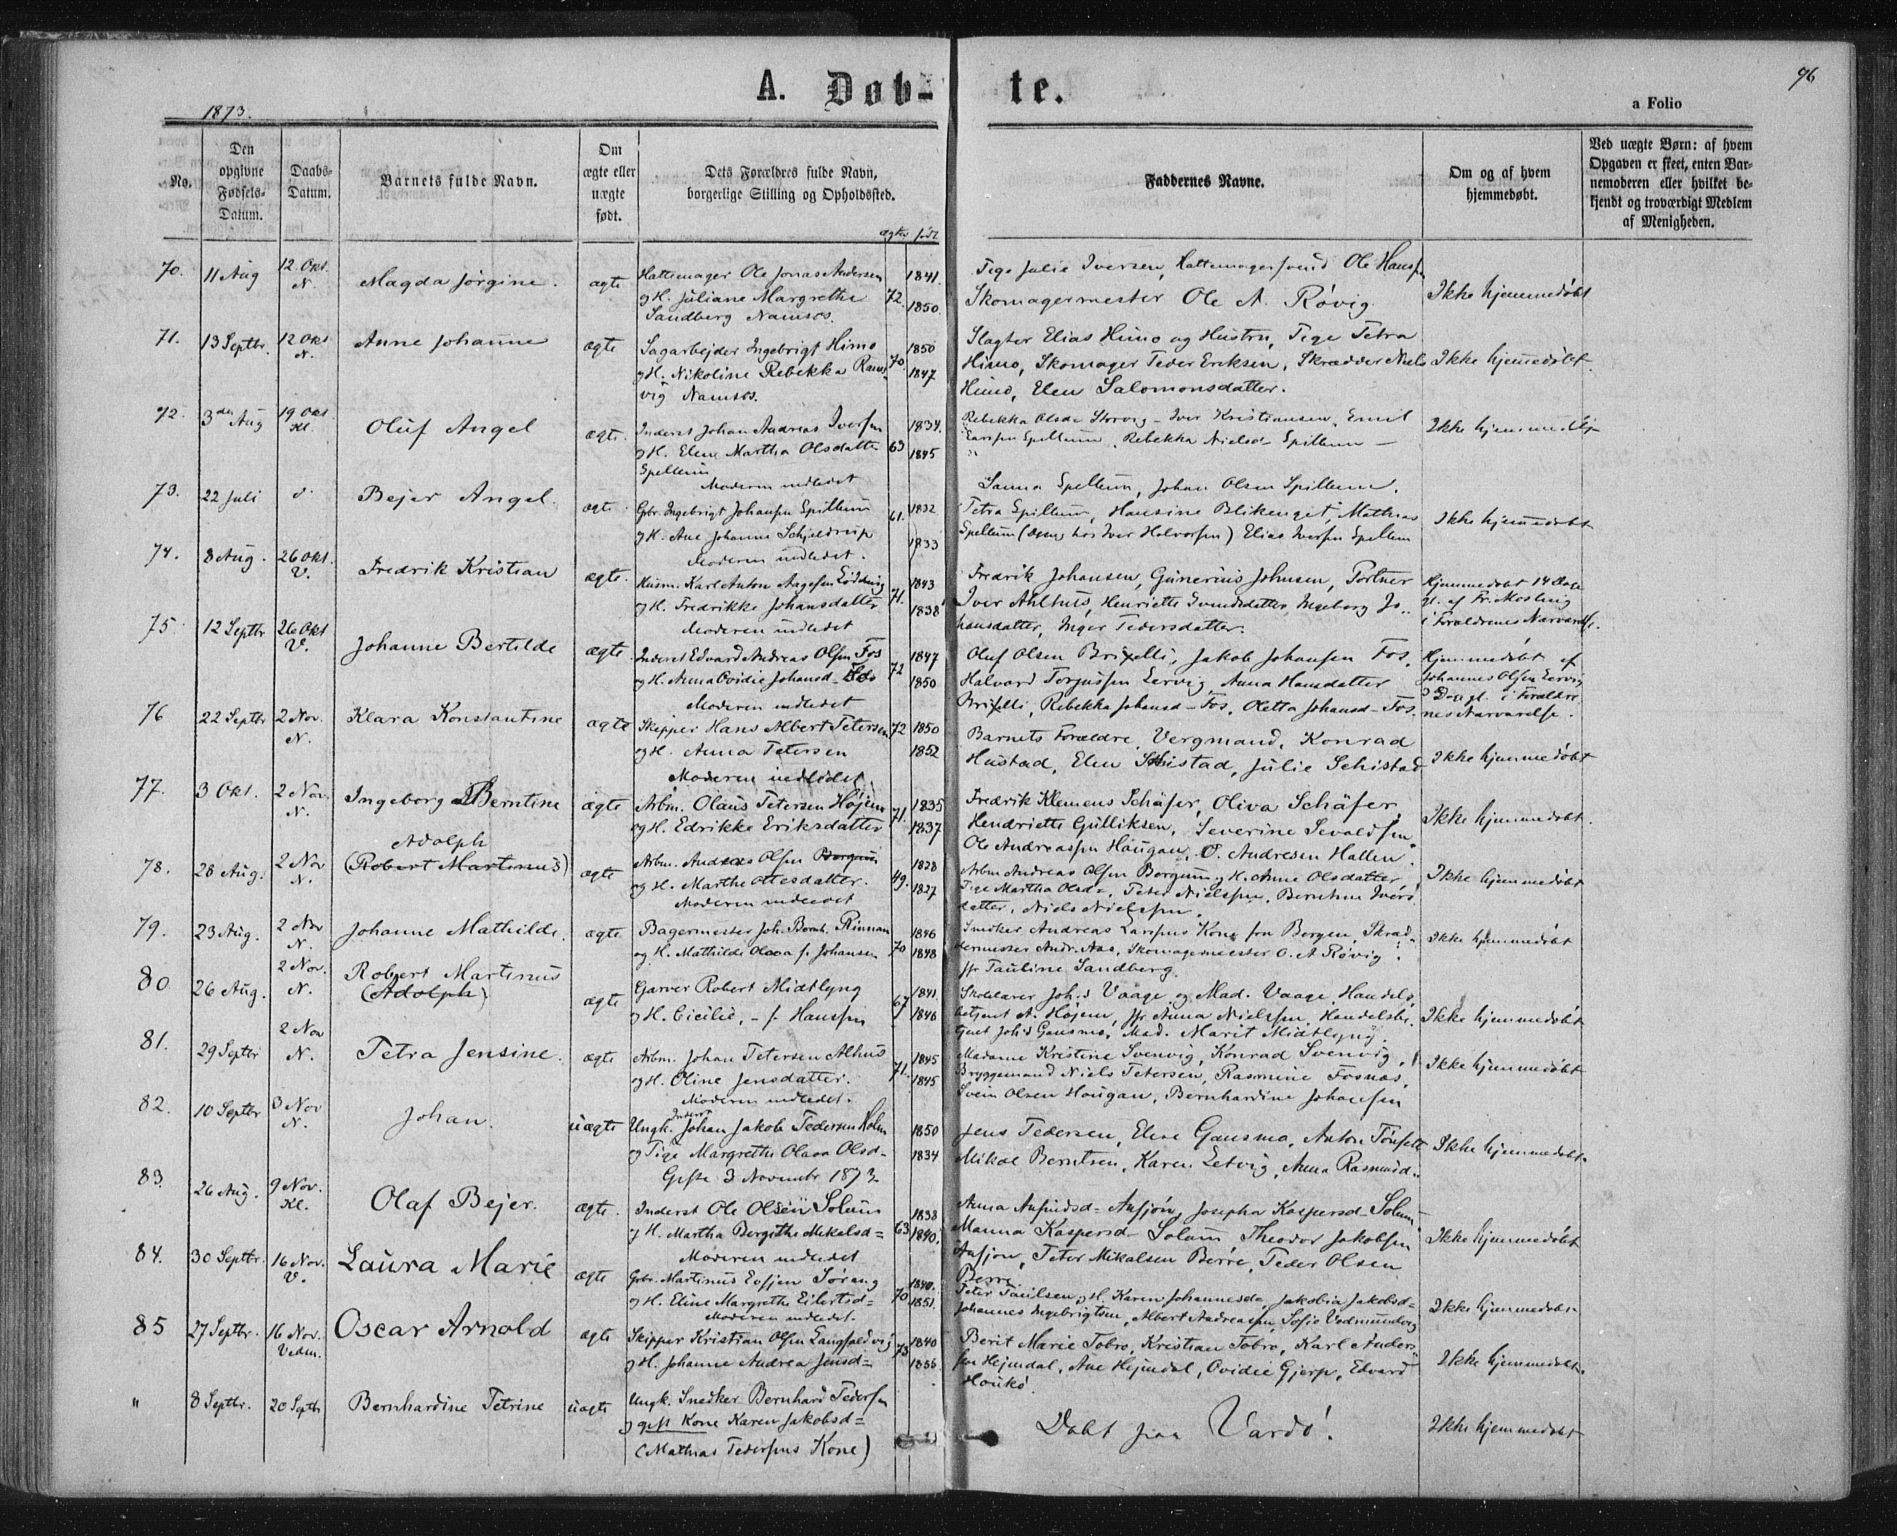 96
A. Døb- te.
a Folio
1873.
No.
Den
opgivne
Fødsels-
Datum.
Daabs-
Datum.
Barnets fulde Navn.
Om
ægte eller
uægte
født.
Dets Forældres fulde Navn,
borgerlige Stilling og Opholdssted.
Faddernes Navne.
Om og af hvem
hjemmedøbt.
Ved uægte Børn: af hvem
Opgaven er skeet, enten Bar-
nemoderen eller hvilket be-
kjendt og troværdigt Medlem
af Menigheden.
70. 11 Aug 12. Okt. N. Magda Jørgine. ægte
Hattemager Ole Jonas Andersen 1841.
og H. Juliane Margrethe 72. 1850.
Sandberg Namsos.
Pige Julie Iversen, Hattemagersvend Ole Hansen
Skomagermester Ole A. Røvig.
Ikke hjemmedøbt
71. 13 Septbr. 12 Okt N. Anne Johanne ægte
Sagarbejder Ingebrigt Himo 1850
og H. Nikoline Rebekka Rams- 70 1847
vig Namsos.
Slagter Elias Himo og Hustru, Pige Petra
Himo, Skomager Peder Eriksen, Skrædder Niels
Himo, Elen Salomonsdatter.
Ikke hjemmedøbt.
72. 3die Aug 19 Okt. Kl. Oluf Angel ægte.
Inderst Johan Andreas Iversen 1834.
og H. Elen Martha Olsdatte 63 1845
Spellum
Moderen indledet
Rebekka Olsd= Storvig – Iver Kristiansen, Emil
Larsen Spellum, Rebekka Nielsd= Spillum –
73. 22 Juli d. Bejer Angel. ægte.
Gbr. Ingebrigt Johansen Spillum 1832
og H. Ane Johanne Schjeldrup 61. 1833
Moderen indledet.
Sanna Spellum, Johan Olsen Spillum.
Petra Spillum, Hansine Blikenget, Mathias
Ikke hjemmedøbt
74. 8 Aug. 26 Okt. V. Fredrik Kristian ægte.
Husm. Karl Anton Aagesen 1843
og H. Fredrikke Johansdatter 71. 1838
Moderen indledet
Fredrik Johansen, Gunerius Johnsen, Portner
Iver Ahlhus, Henriette Svendsdatter, Ingeborg Jo-
hansdatter, Inger Pedersdatter.
Hjemmedøbt 14 Dage
gl. af Fr. Mosling
i Forældrenes Nærværelse.
75. 12 Septbr 26 Okt V. Johanne Bertilde ægte
Inderst Edvard Andreas Olsen Fos 1847
og H. Anna Ovidie Johansd= Fos 72 1850
Moderen indledet
Oluf Olsen Brixelli, Jakob Johansen Fos,
Halvard Torjussen Lervig, Anna Hansdatter
Brixelli, Rebekka Johansd= Fos, Oletta Johansd= Fos.
Hjemmedøbt af
Johannes Olsen Lervig
i Foræld-
nes Nærværelse.
76 22 Septbr 2 Nov. N. Klara Konstantine ægte
Skipper Hans Albert Petersen 72 1850
og H. Anna Petersen 1852
Moderen indledet.
Barnets Forældre, Vergmand, Konrad
Hustad, Elen Schistad, Julie Schistad
Ikke hjemmedøbt
77. 3 Okt. 2 Nov. N. Ingeborg Berntine ægte
Arbm. Olaus Petersen Højem 71. 1835
og H. Edrikke Eriksdatter 1837
Fredrik Klemens Schäfer, Oliva Schäfer,
Henriette Gulliksen, Severine Sevaldsen
Ole Andreassen Haugan, O. Andresen Hallen.
Ikke hjemmedøbt.
78. 28 Aug. 2 Nov N. Adolph
(Robert Martinus) ægte
Arbm. Andreas Olsen Borgum 1828
og H. Marthe Ottesdatter. 49. 1827
Moderen indledet
Arbm Andreas Olsen Borgum og H. Anne Olsdatter
Pige Martha Olsd=, Peter Nielssen, Berntine Ivers-
datter, Niels Nielssen.
Ikke hjemmedøbt
79. 23 Aug. 2 Nov N. Johanne Mathilde. ægte
Bagermester Joh. Bernh. Rinnan 1846
og H. Mathilde Olava f. Johansen 70 1848
Smeker Andreas Larsens Kone fra Borgen, Skræd-
dermester Andr. Aas, Skomagermester O. A Røvig,
jfr Pauline Sandberg.
Ikke hjemmedøbt
80. 26 Aug. 2 Nov. N. Robert Martinus
(Adolph) ægte
Garver Robert Midtlyng 67 1841.
og H. Cicilie, – f. Hanssen 1846
Skolelærer Joh.s Vaage og Mad. Vaage, Handels-
betjent A. Højem, jfr Anna Nielssen, Handelsbe-
tjent Joh.s Gansmo, Mad. Marit Midtlyng.
Ikke hjemmedøbt
81. 29 Septbr 2 Nov N. Petra Jensine. ægte
Arbm. Johan Petersen Alhus 1845
og H. Oline Jensdatter. 71. 1845
Moderen indledet.
Madame Kristine Svenvig, Konrad Svenvig,
Bryggemand Niels Petersen, Rasmine Fosnæs,
Svein Olsen Haugan, Bernhardine Johansen
Ikke hjemmedøbt
82. 10 Septbr 3 Nov N. Johan. uægte
Ungk. Johan Jakob Pedersen Holm 1850
og Pige Margrethe Olava Olsd= 1834
Gifte 3 November 1873
Jens Pedersen, Elise Gansmo, Anton Tønseth
Mikal Berntsen, Karen Letvig, Anna Rasmusd=
Ikke hjemmedøbt.
83. 26 Aug. 9 Nov. Kl. Olaf Bejer. ægte.
Inderst Ole Olsen Solum 1838
og H. Martha Bergithe Mikalsd= 63 1840.
Moderen indledet
Anna Anfindsd= Aasjøn, Josepha Kaspersd= Solum
Manna Kaspersd= Solum, Theodor Jakobsen
Aasjøn, Peter Mikalsen Berre, Peder Olsen
Berre
Ikke hjemmedøbt
84. 30 Septbr. 16 Nov. V. Laura Marie ægte
Gbr. Martinus Sørang 1840.
og H. Eline Margrethe Eilertsd= 70 1851.
Moderen indledet.
Peter Paulsen, og H. Karen Johannesd=, Jakobia Jakobsd=
Johannes Ingebrigtsen, Albert Andreassen, Sofie Vedmundvig
Ikke hjemmedøbt
85 27 Septbr. 16 Nov. Vedm. Oscar Arnold ægte
Skipper Kristian Olsen 73 1840
og H. Johanne Andrea Jensd=
Berit Marie Fobro, Kristian Fobro, Karl Anders-
sen Hejmdal, Ane Hejmdal, Ovidie Gjerp, Edvard
Ikke hjemmedøbt.
" 8 Septbr. 20 Septb Bernhardine Petrine uægte
Ungk. Snedker Bernhard Pedersen
og gift Kone Karen Jakobsd=
(Mathias Pedersens Kone)
Døbt paa Vardø!
Ikke hjemmedøbt